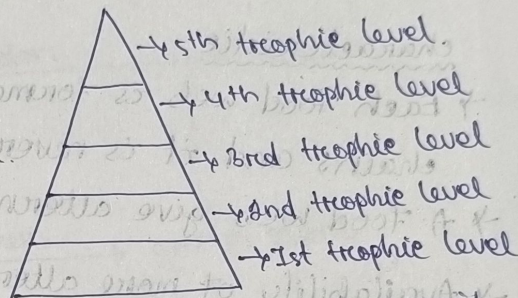 → 5th treophie level.
→ 4th treophie level
→ 3rd treophie level
→ 2nd treophie level
→ 1st treophie level